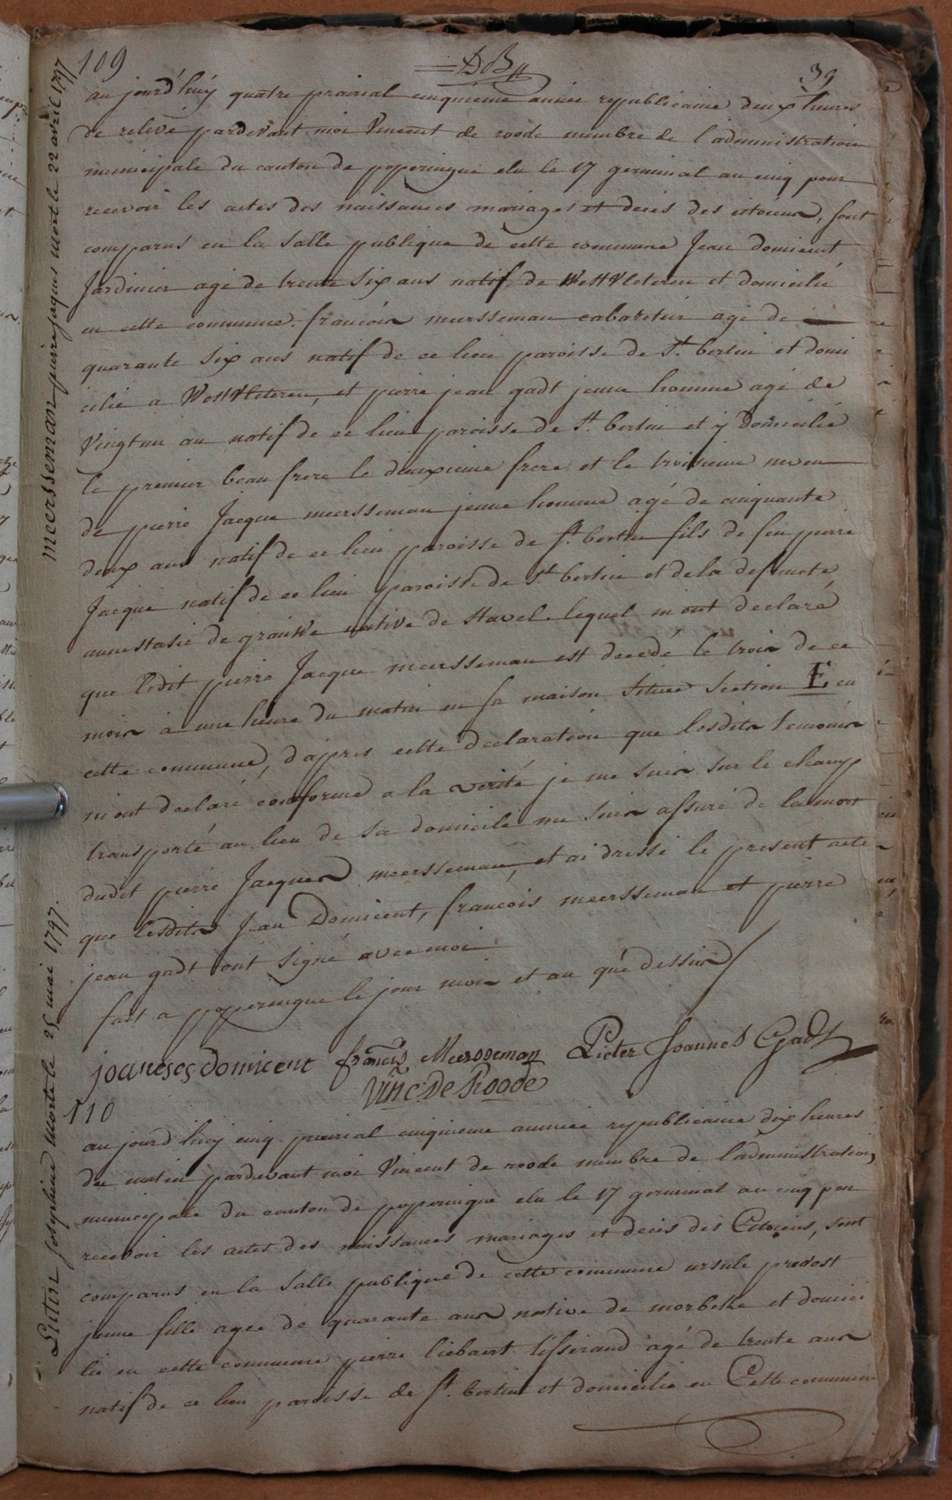 109
39
meersseman pierre jaques mort le 22 avril 1797
au jourd'huy quatre prairial cinquieme année republicaine deux heures
de relevé pardevant moi Vincent de roode membre de l'administration
municipale du canton de poperingue elu le 17 germinal an cinq pour
recevoir les actes des naissances mariages et deces des citoiens, sont
comparus en la salle publique de cette commune Jean domicent
Jardinier agé de trente six ans natif de WestVleteren et domicilié
en cette commune, francois meersseman cabaretier agé de
quarante six ans natif de ce lieu paroisse de St. bertin et domi
cilié a WestVleteren, et pierre jean gadt jeune homme agé de
Vingt un an natif de ce lieu paroisse de St. bertin et y domicilié
le premier beau frere le deuxieme frere et le troisieme neveu
de pierre Jacque meersseman jeune homme agé de cinquante
deux ans natif de ce lieu paroisse de St. bertin fils de feu pierre
Jacque natif de ce lieu paroisse de St bertin et de la defunte
annestasie de native de Stavele lequel m'ont declaré
que ledit pierre Jacque meersseman est decedé le trois de ce
mois à une heure du matin en sa maison Situee Section E en
cette commune, d'apres cette declaration que lesdits temoins
m'ont declaré conforme a la verité je me suis sur le champ
transporté au lieu de sa domicile me suis assuré de la mort
dudit pierre Jacques meersseman, et ai dressé le present acte
que lesdits Jean Domicent, francois meersseman et pierre
jean gadt ont signé avec moi
fait a poperingue le jour mois et an que dessus
joannes domicent francis Meersseman Pieter Joannes Gadt
Vinc De Roode
110
josephine morte le 25 mai 1797.
au jourd'huy cinq prairial cinquieme année republicaine dix heures
du matin pardevant moi Vincent de roode membre de l'administration,
municipale du canton de poperingue elu le 17 germinal an cinq pour
recevoir les actes des naissances mariages et deces des Citoiens, sont
comparus en la salle publique de cette commune ursule prodost
jeune fille agee de quarante ans native de morbeke et domici
lie en cette commune pierre liebaert tisserand agé de trente ans
natif de ce lieu paroisse de St. bertin et domicilié en Cette commune